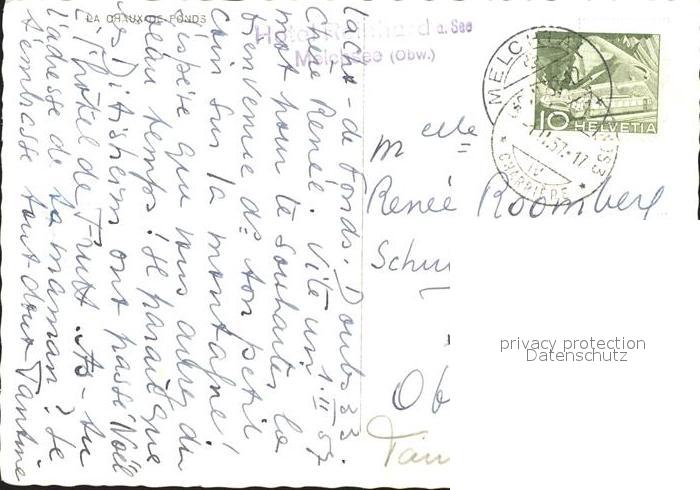 LA CHAUX-DE-FONDS
Hotel Reinhard a. See
Melchsee (Obw.)
MELCHTAL
10 HELVETIA
CHARRIERE
La Chx-de-Fonds. Doubs 33
Chère Renée. Vite un 1.II.57
mot pour te souhaiter la
bienvenue ds ton petit
coin sur la montagne!
J'espère que vous aurez du
beau temps! Il paraît que
les Ditisheim ont passé Noël
à l'hôtel de Frutt. As-tu
l'adresse de ta maman? Je
t'embrasse tout doux Tantine
Melle
Renée Roomberg
privacy protection
Datenschutz